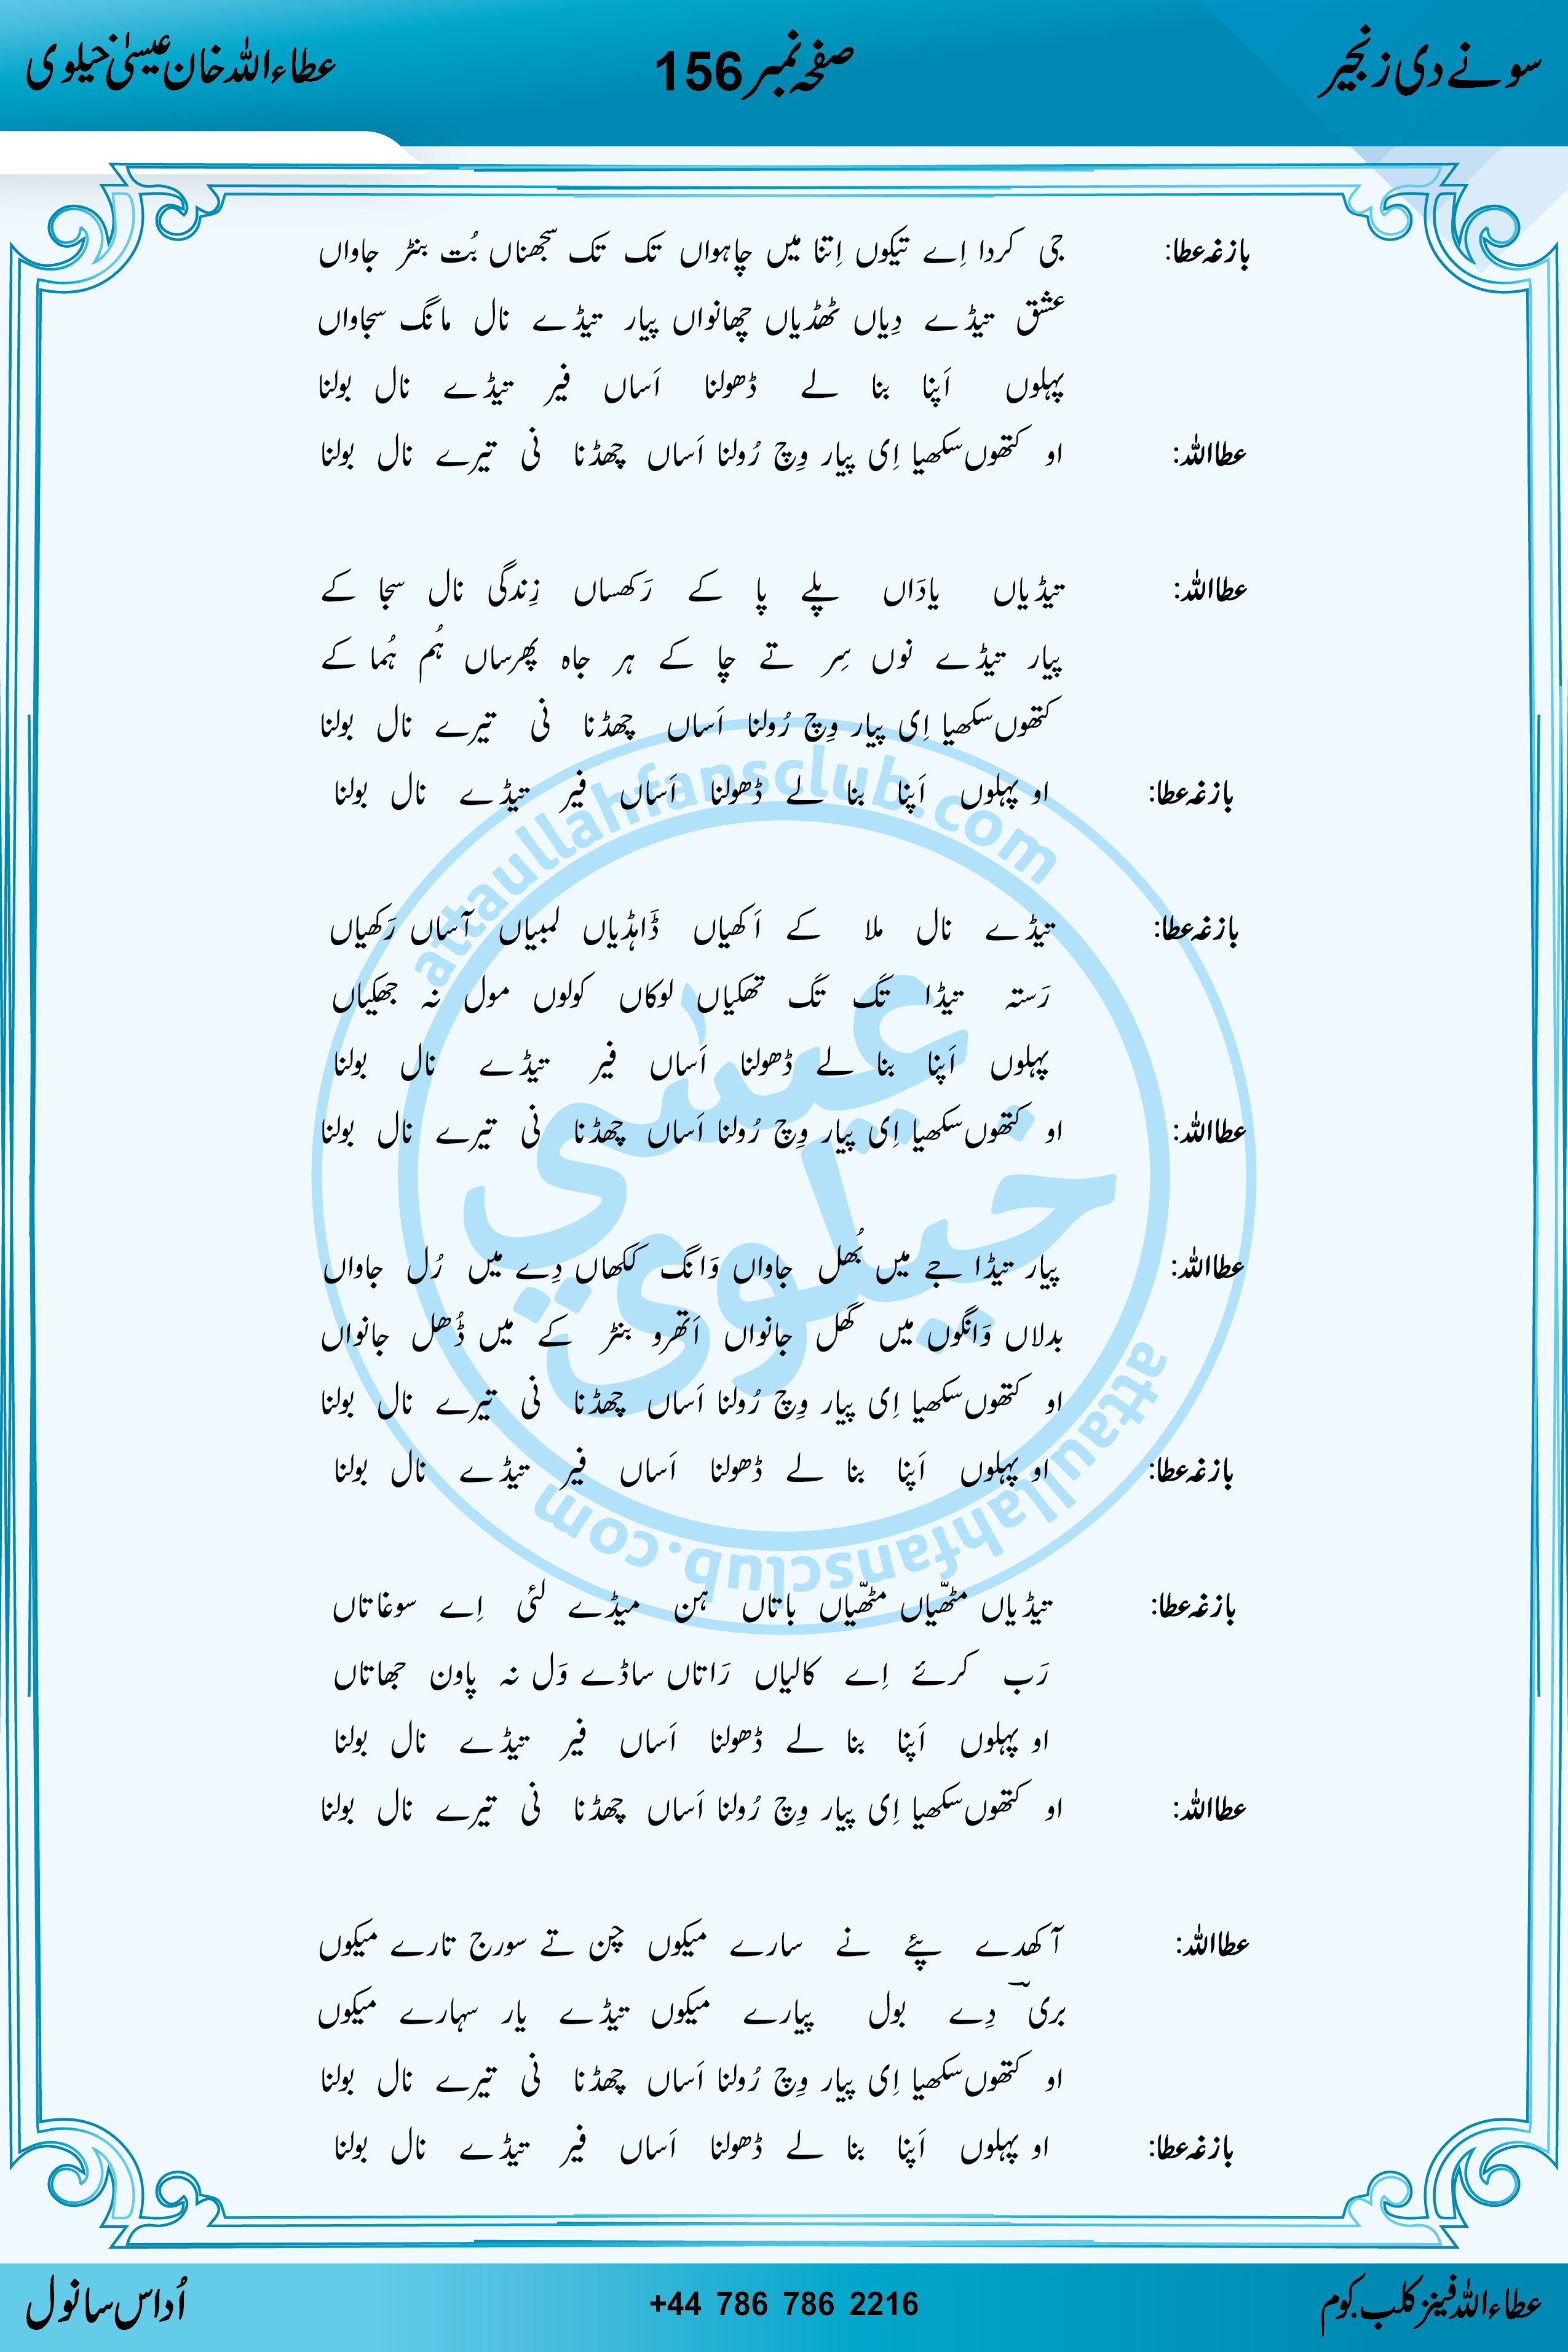 سونے دی زنجیر
صفحہ نمبر 156
عطاءاللہ خان عیسیٰ خیلوی
بازغہ عطا: جی کردا اِے تیکوں اِتنا میں چاہواں تک تک سجھناں بُت بنڑ جاواں
عشق تیڈے دِیاں ٹھڈیاں چھانواں پیار تیڈے نال مانگ سجاواں
پہلوں اَپنا بنا لے ڈھولنا اَساں فیر تیڈے نال بولنا
عطااللہ: او کتھوں سکھیا اِی پیار وِچ رُولنا اَساں چھڈنا نی تیرے نال بولنا
عطااللہ: تیڈیاں یادَاں پلے پا کے رَکھساں زِندگی نال سجا کے
پیار تیڈے نوں سِر تے چا کے ہر جاہ پھرساں ہُم ہُما کے
کتھوں سکھیا اِی پیار وِچ رُولنا اَساں چھڈنا نی تیرے نال بولنا
بازغہ عطا: او پہلوں اَپنا بنا لے ڈھولنا اَساں فیر تیڈے نال بولنا
بازغہ عطا: تیڈے نال ملا کے اَکھیاں ڈَاہڈیاں لمبیاں آساں رَکھیاں
رَستہ تیڈا تَگ تَگ تھکیاں لوکاں کولوں مول نہ جھکیاں
پہلوں اَپنا بنا لے ڈھولنا اَساں فیر تیڈے نال بولنا
عطااللہ: او کتھوں سکھیا اِی پیار وِچ رُولنا اَساں چھڈنا نی تیرے نال بولنا
عطااللہ: پیار تیڈا جے میں بُھل جاواں وَانگ ککھاں دِے میں رُل جاواں
بدلاں وَانگوں میں گَھل جانواں اَتھرو بنڑ کے میں ڈُھل جانواں
او کتھوں سکھیا اِی پیار وِچ رُولنا اَساں چھڈنا نی تیرے نال بولنا
بازغہ عطا: او پہلوں اَپنا بنا لے ڈھولنا اَساں فیر تیڈے نال بولنا
بازغہ عطا: تیڈیاں مٹھّیاں مٹھّیاں باتاں ہن میڈے لئی اِے سوغاتاں
رَب کرئے اِے کالیاں رَاتاں ساڈے وَل نہ پاون جھاتاں
او پہلوں اَپنا بنا لے ڈھولنا اَساں فیر تیڈے نال بولنا
عطااللہ: او کتھوں سکھیا اِی پیار وِچ رُولنا اَساں چھڈنا نی تیرے نال بولنا
عطااللہ: آکھدے پئے نے سارے میکوں چن تے سورج تارے میکوں
بری دِے بول پیارے میکوں تیڈے یار سہارے میکوں
او کتھوں سکھیا اِی پیار وِچ رُولنا اَساں چھڈنا نی تیرے نال بولنا
بازغہ عطا: او پہلوں اَپنا بنا لے ڈھولنا اَساں فیر تیڈے نال بولنا
attaullahfansclub.com
عیسیٰ
خیلوی
attaullahfansclub.com
عطاءاللہ فینز کلب.کوم
+44 786 786 2216
اُداس سانول